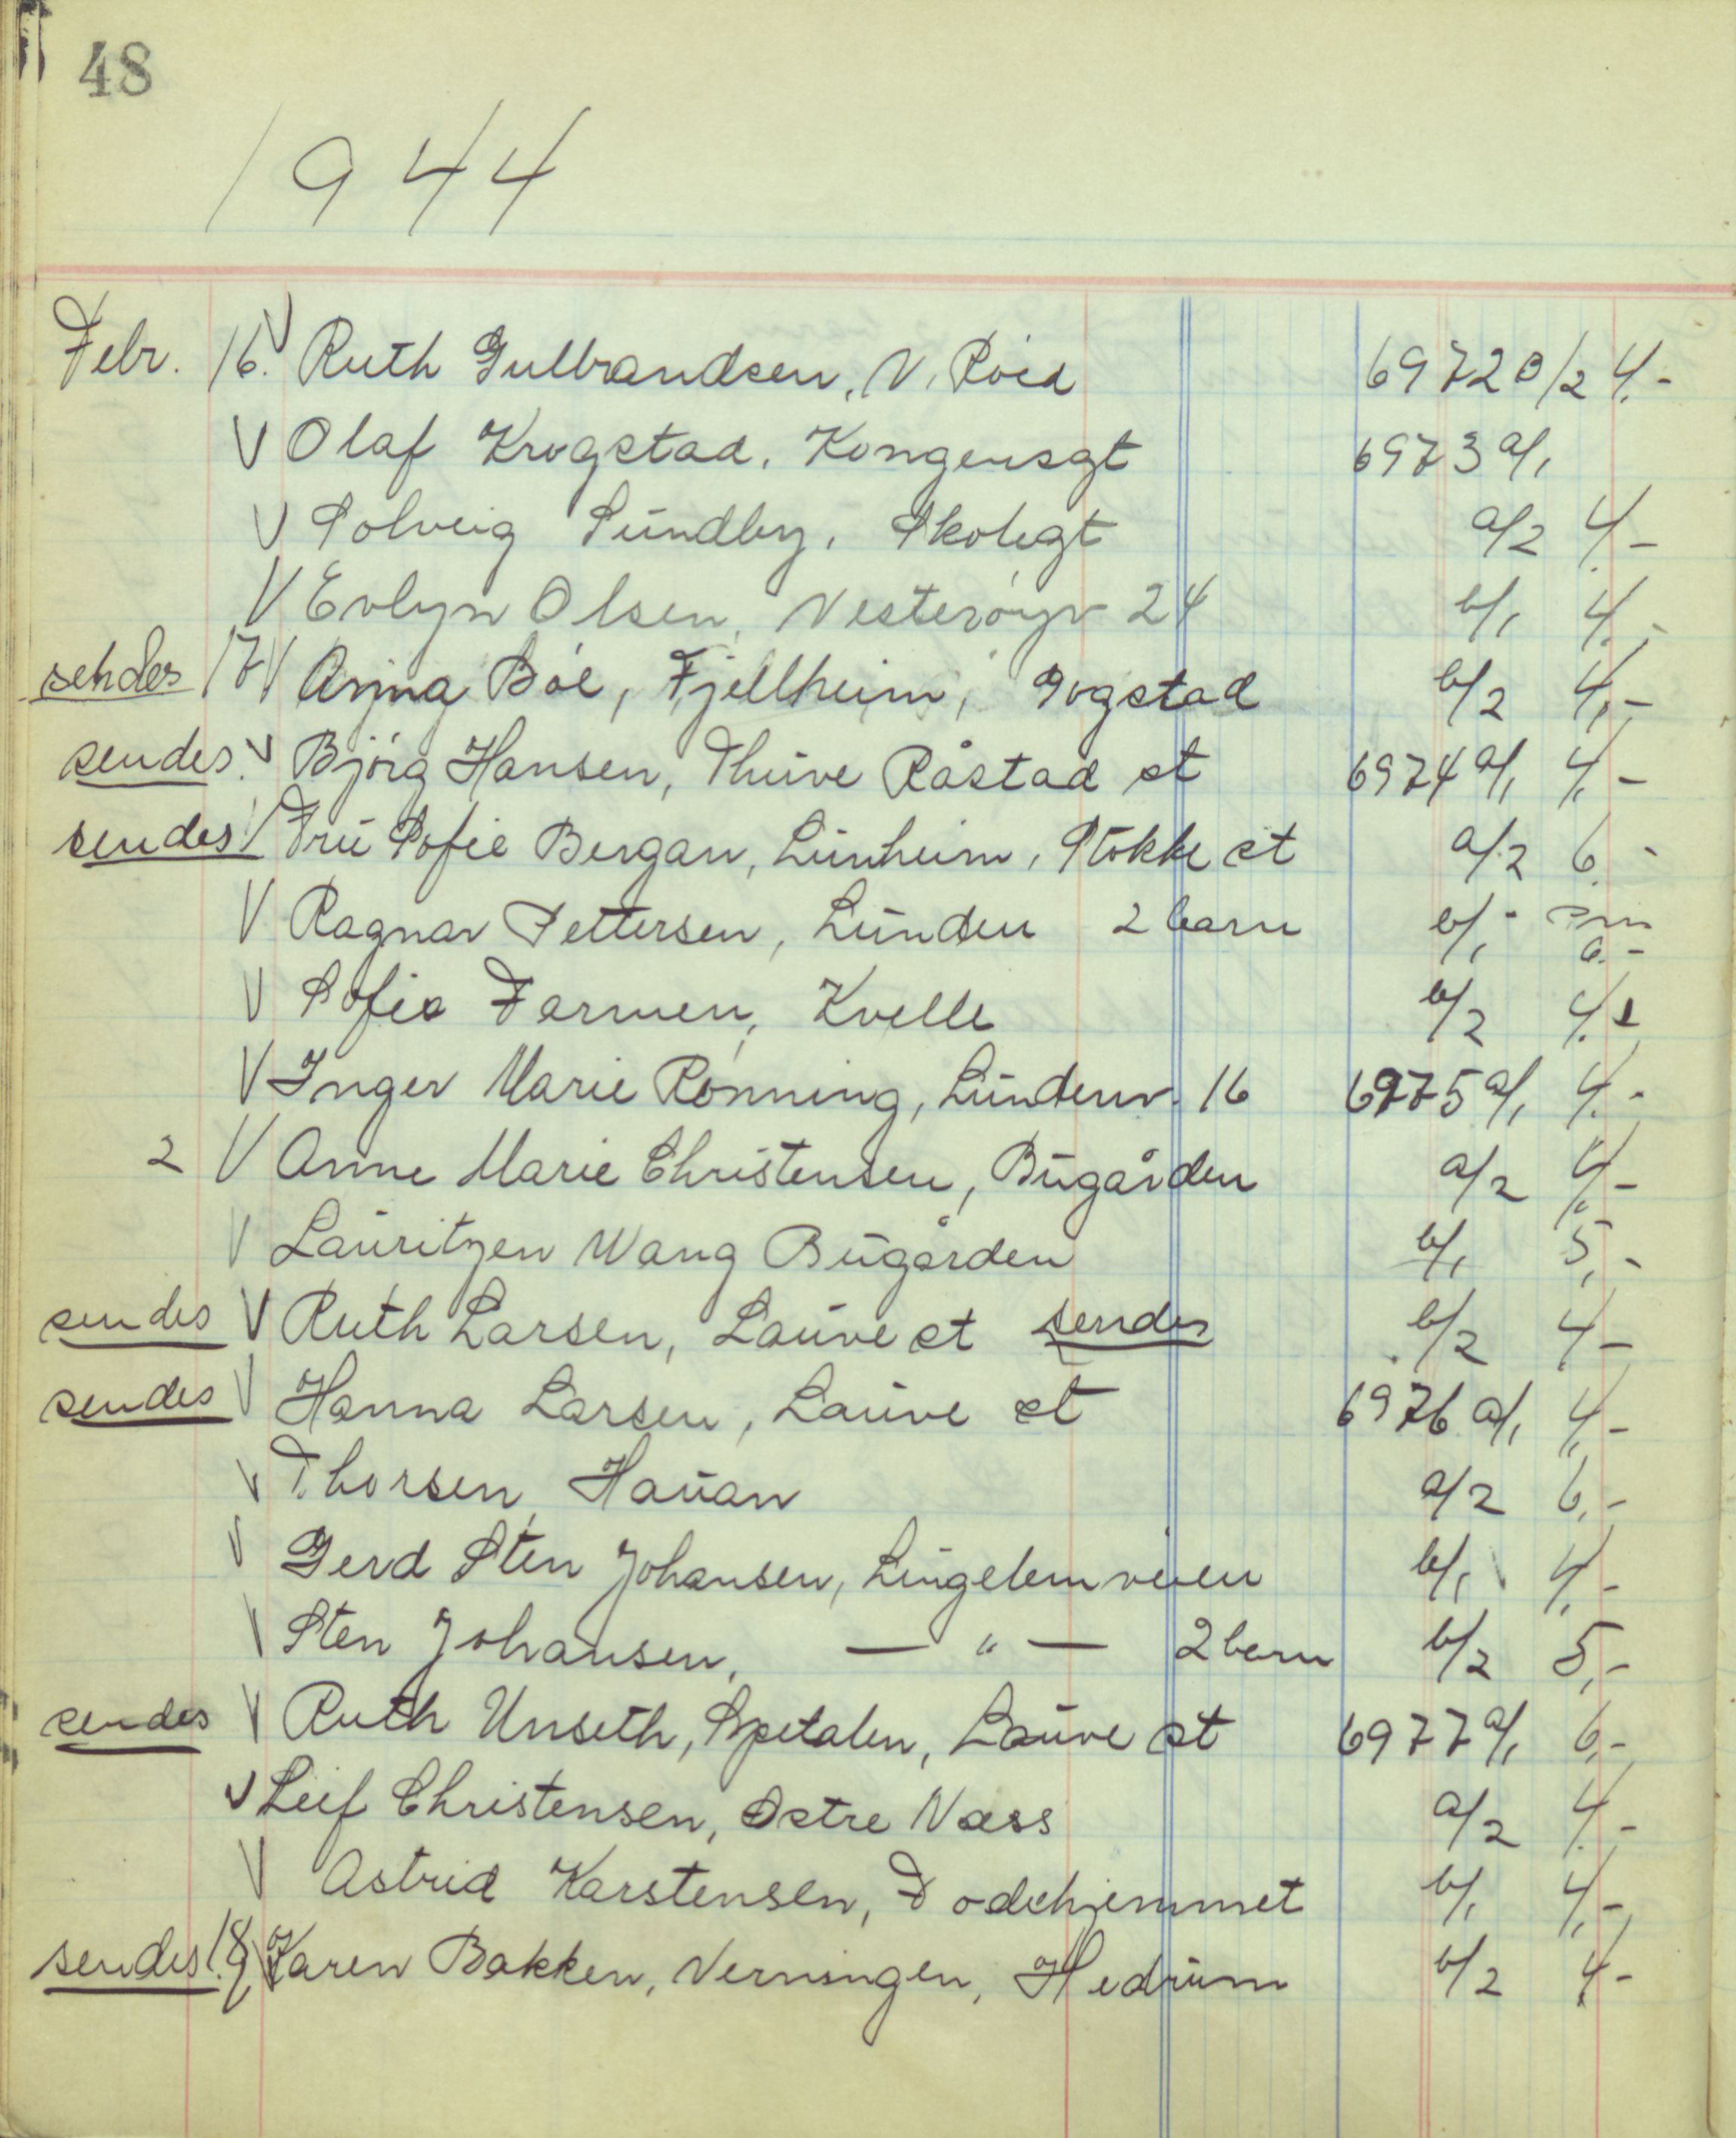 48
1944
Febr. 16. V Ruth Gulbrandsen, N. Röed 6972 B/2 4.-
V Olaf Krogstad, Kongensgt 6973 a/1
V Solveig Sundby, Skolegt a/2 4.-
V Evlyn Olsen, Vesteröyv 24 b/1 4.-
sendes 17 V Anna Böe, Fjellheim, Gogstad b/2 4,-
sendes. V Björg Hansen, Thuve Råstad st 6974 a/1 4,-
sendes V Fru Sofie Bergan, Lunheim, Stokke st a/2 6.-
V Ragnar Pettersen, Lunden 2 barn b/1 - 6.-
V Sofie Farmen, Kvelle b/2 4.
V Inger Marie Rönning, Lundenv. 16 6975 a/1 4.-
2 V Anne Marie Christensen, Bugården a/2 4,-
V Lauritzen Wang Bugården b/1 5,-
sendes V Ruth Larsen, Lauve st sendes b/2 4-
sendes V Hanna Larsen, Lauve st 6976 a/1 4,-
V Thorsen, Hauan a/2 6,-
V Gerd Sten Johansen, Lingelemveien b/1 4,-
V Sten Johansen, — " — 2 barn b/2 5,-
sendes V Ruth Unseth, Spetalen, Lauve st 6977 a/1 6,-
V Leif Christensen, Östre Næss a/2 4.-
V Astrid Karstensen, Födehjemmet b/1 4,-
sendes 18 V Karen Bakken, Verningen, Hedrum b/2 4-